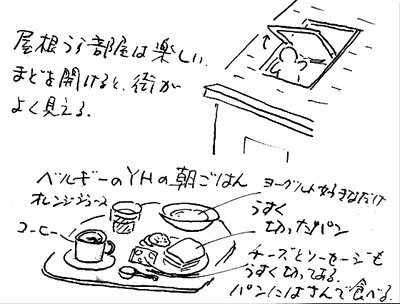 屋根うら部屋は楽しい.
まどを開けると、街が
よく見える.
ベルギーのYHの朝ごはん
オレンジジュース
コーヒー
ヨーグルト好きなだけ
うすく
切ったパン
チーズとソーセージも
うすく切ってある.
パンにはさんで食べる.